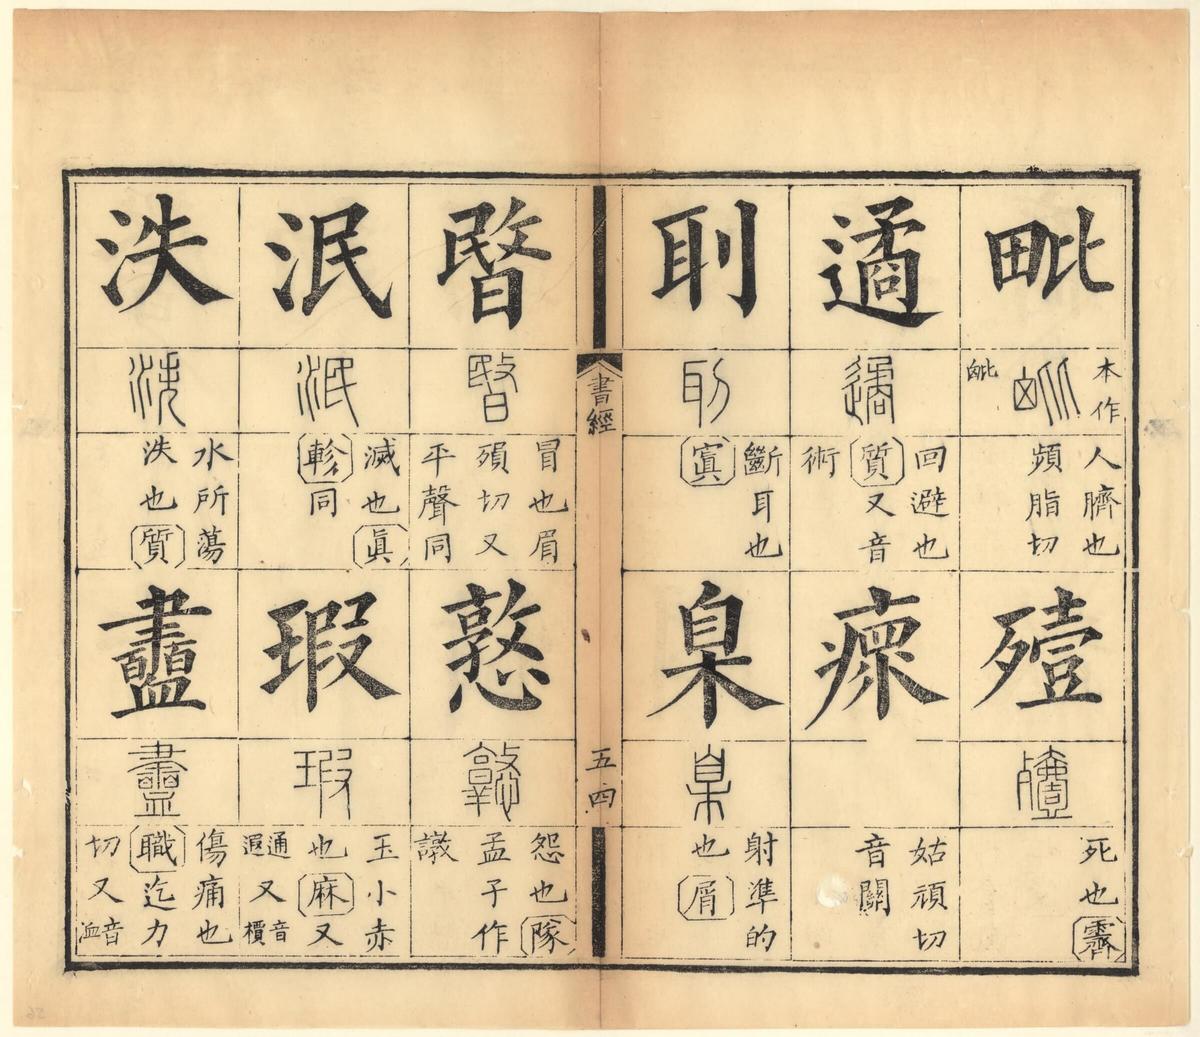 毗
本作
㽙
人臍也
頻脂切
遹
回避也
質又音
術
刵
斷耳也
寘
殪
死也霽
瘝
姑頑切
音關
臬
射準的
也屑
書經
五四
暋
冒也眉
殞切又
平聲同
泯
滅也眞
軫同
泆
水所蕩
泆也質
憝
怨也隊
孟子作
譈
瑕
玉小赤
也麻又
通遐又音檟
衋
傷痛也
職迄力
切又音